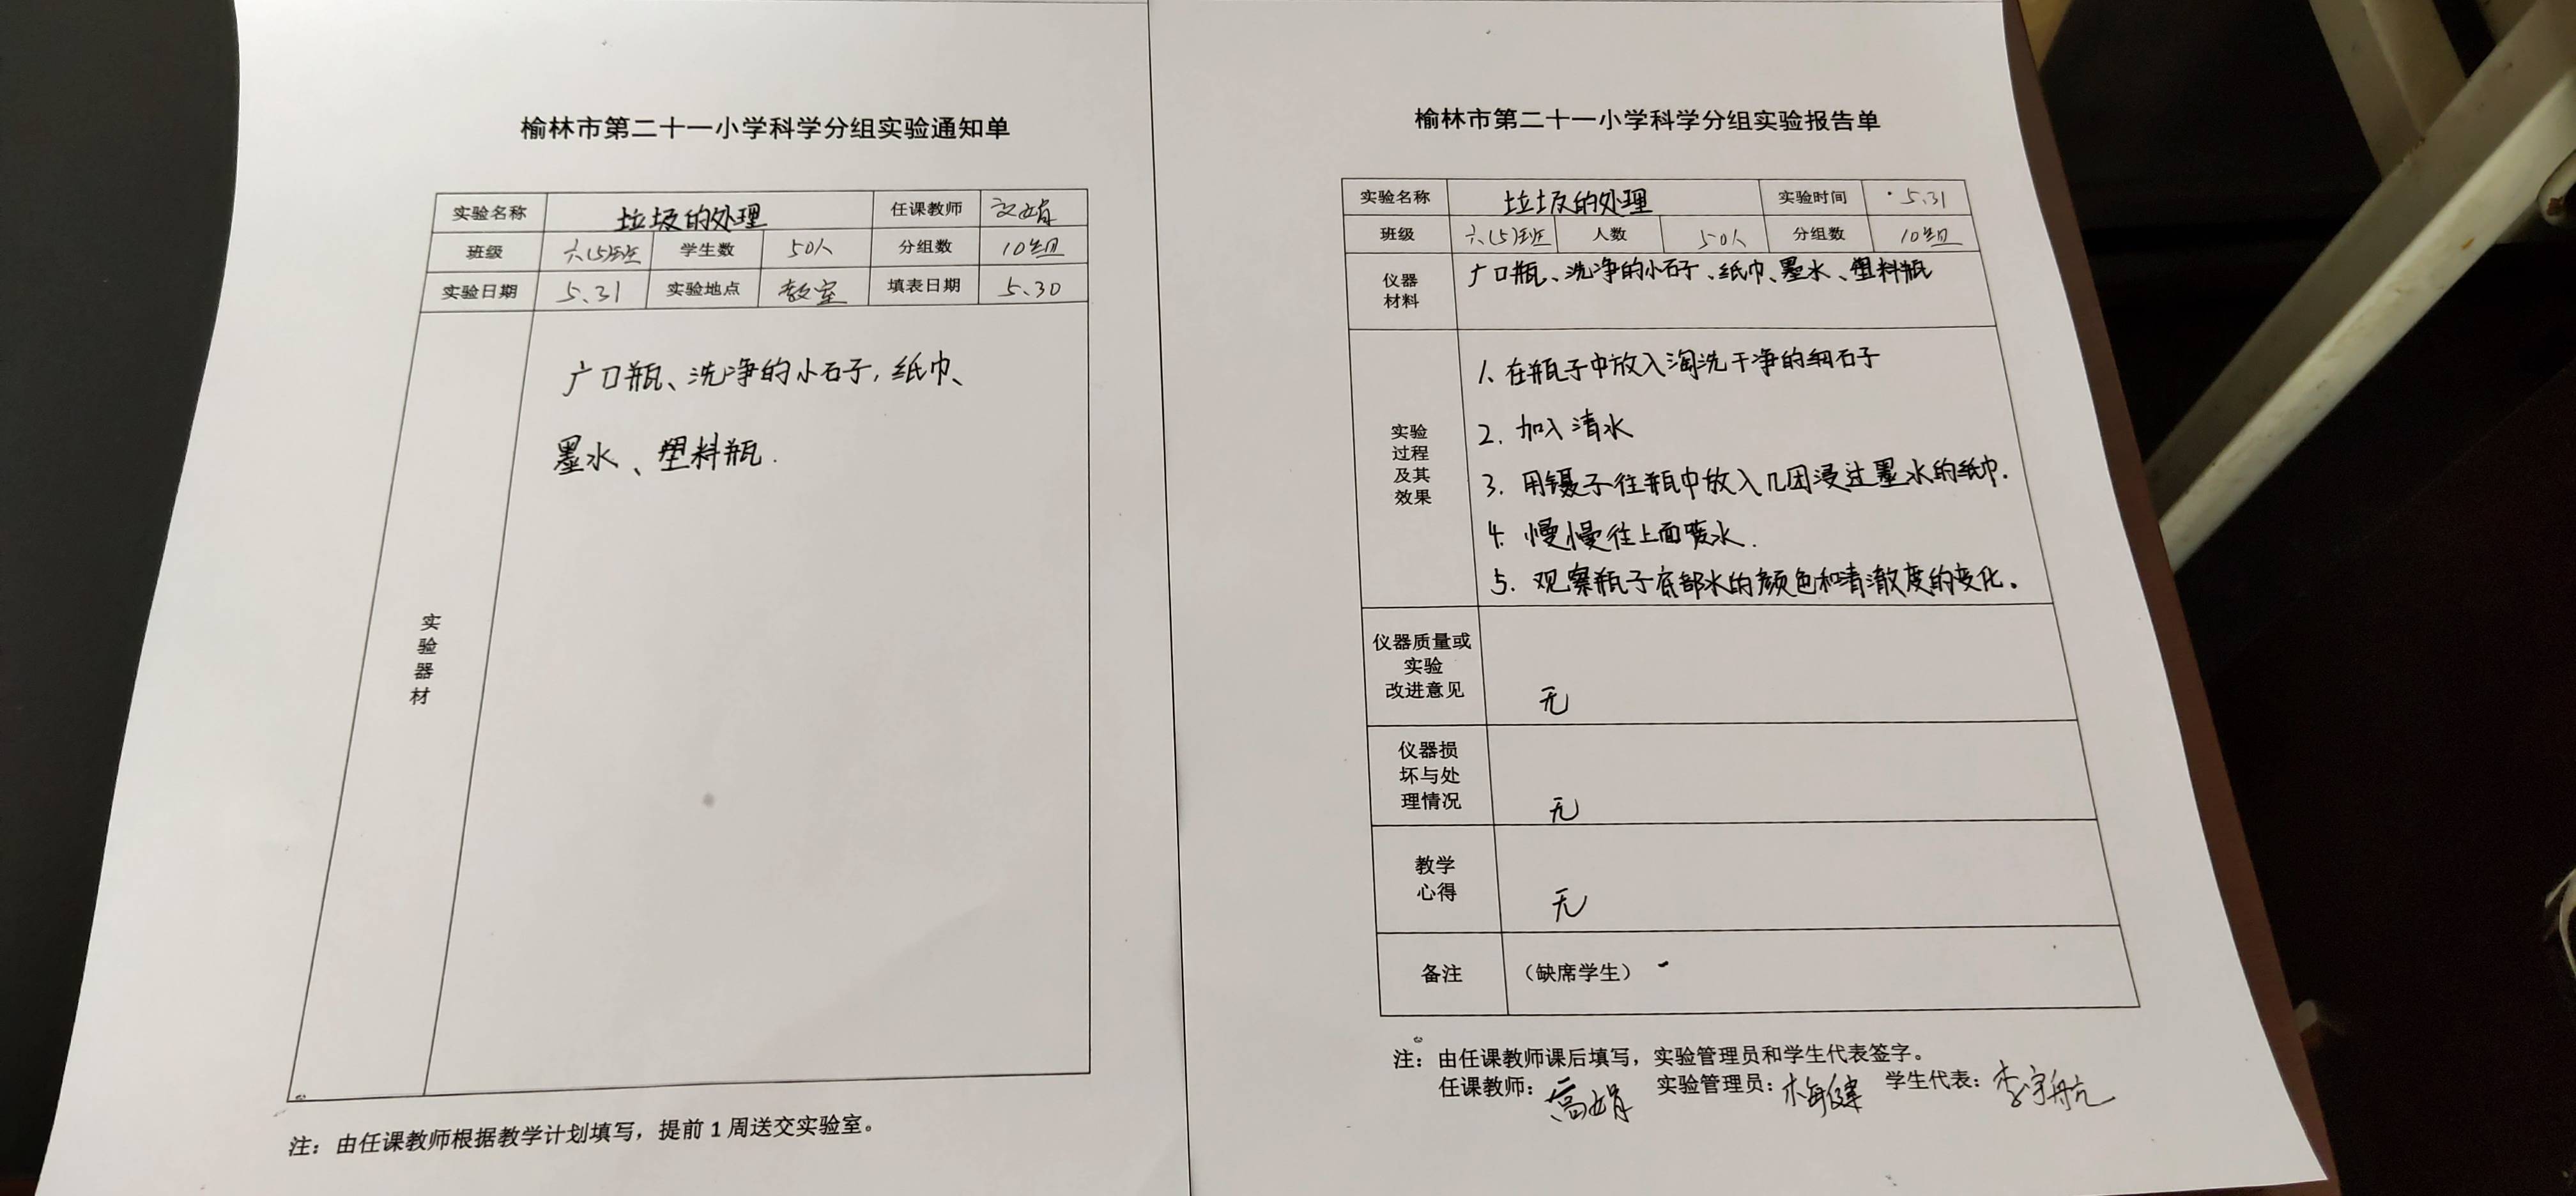 榆林市第二十一小学科学分组实验通知单
实验名称 垃圾的处理 任课教师 高娟
班级 六(5)班 学生数 50人 分组数 10组
实验日期 5.31 实验地点 教室 填表日期 5.30
实验器材
广口瓶、洗净的小石子,纸巾、
墨水、塑料瓶.
注：由任课教师根据教学计划填写，提前1周送交实验室。
榆林市第二十一小学科学分组实验报告单
实验名称 垃圾的处理 实验时间 5.31
班级 六(5)班 人数 50人 分组数 10组
仪器
材料
广口瓶、洗净的小石子、纸巾、墨水、塑料瓶
实验
过程
及其
效果
1、在瓶子中放入淘洗干净的细石子
2. 加入清水
3. 用镊子往瓶中放入几团浸过墨水的纸巾.
4. 慢慢往上面喷水.
5. 观察瓶子底部水的颜色和清澈度的变化。
仪器质量或
实验
改进意见
无
仪器损
坏与处
理情况
无
教学
心得
无
备注 （缺席学生）
注：由任课教师课后填写，实验管理员和学生代表签字。
任课教师：高娟 实验管理员： 学生代表：李宇航